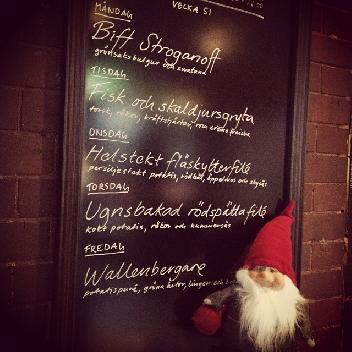 VECKA 51
MÅNDAG
Biff Stroganoff
grönsaks bulgur och smetana
TISDAG
Fisk och skaldjursgryta
torsk, räkor, kräftstjärtar, rosa crème fraiche
ONSDAG
Helstekt fläskytterfilé
persiljeslakt potatis, rödkål, äppelmos och skysås
TORSDAG
Ugnsbakad rödspättafilé
kokt potatis, räkor och hummersås
FREDAG
Wallenbergare
potatispuré, gröna ärtor, lingon och